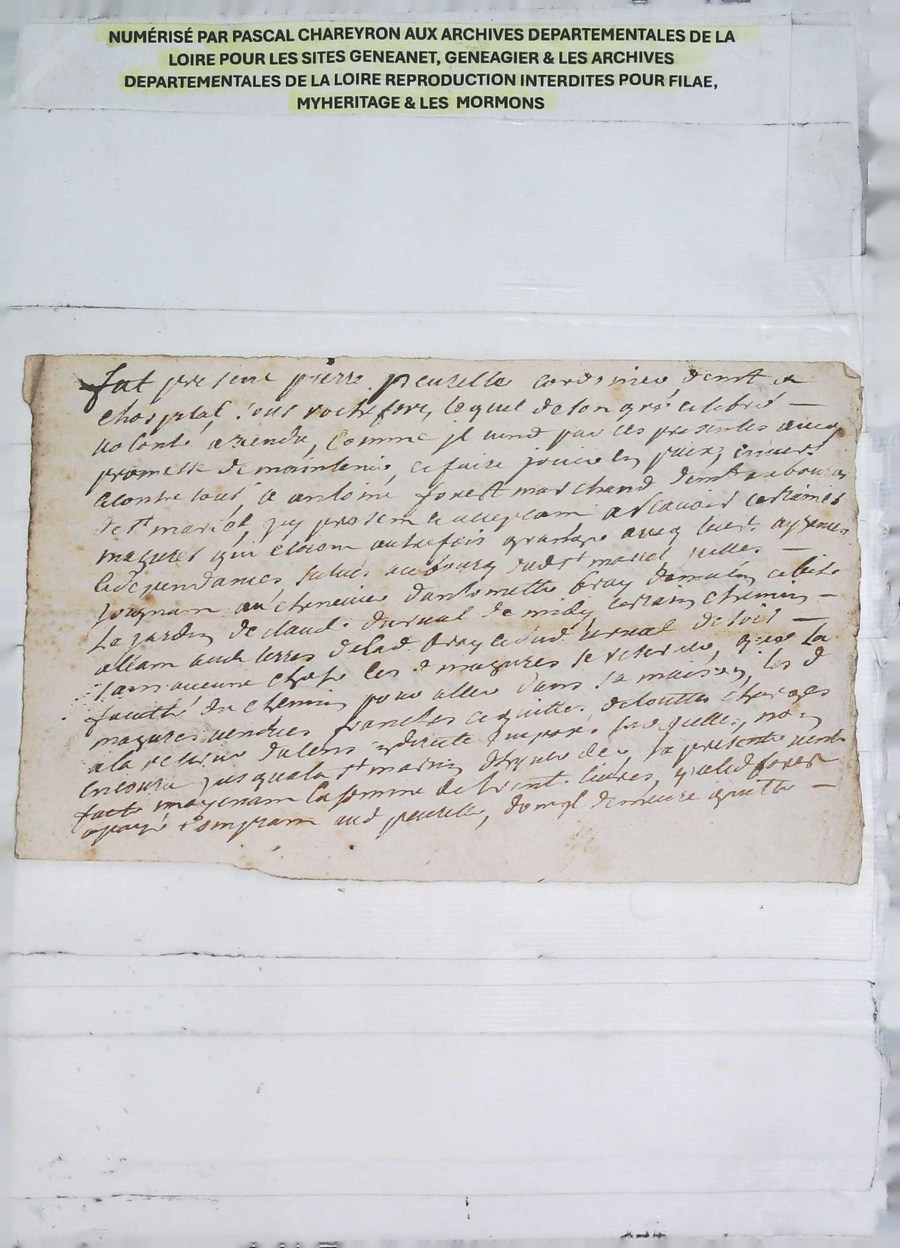 NUMÉRISÉ PAR PASCAL CHAREYRON AUX ARCHIVES DEPARTEMENTALES DE LA
LOIRE POUR LES SITES GENEANET, GENEAGIER & LES ARCHIVES
DEPARTEMENTALES DE LA LOIRE REPRODUCTION INTERDITES POUR FILAE,
MYHERITAGE & LES MORMONS
fut present pierre peurelle cordonier demt a
lhospital sous rochefort, lequel de son gré et libre
volonté a vendu, comme jl vend par ces presentes avec
promesse de maintenir, et faire jouir en paix envers
et contre tous a antoine forest marchand demt au bourg
de st marcel jcy present et acceptant ascavoir certaines
mazures qui etoient autrefois grange avec leurs aysances
et dependances, situés au bourg dudt st marcel
joignant au chenevier dantoinette bray de matin et bize
le jardin de claude durual de midy certain chemin
allant aux terres de lad bray et dud durual de soir
sans aucune chose les d mazures se reserver, que la
faculté du chemin pour aller dans sa maison, les d
mazures vendues franches et quittes de touttes charges
a la reserve du cens
encouru jusqua la st martin dhyver der la presente vente
faite moyenant la somme de vent livres, que led forest
a payé comptant aud peurelle, dont jl demeure quitte